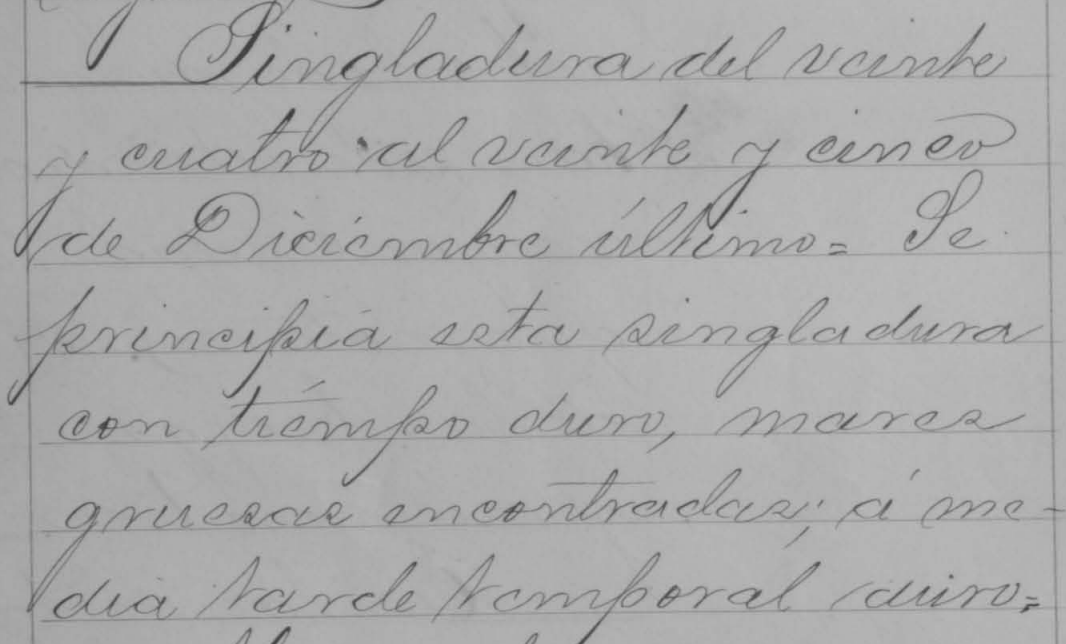 Singladura del veinte
y cuatro al veinte y cinco
de Diciembre último= Se
principia esta singladura
con tiempo duro, mares
gruesas encontradas; á me-
dia tarde temporal duro=